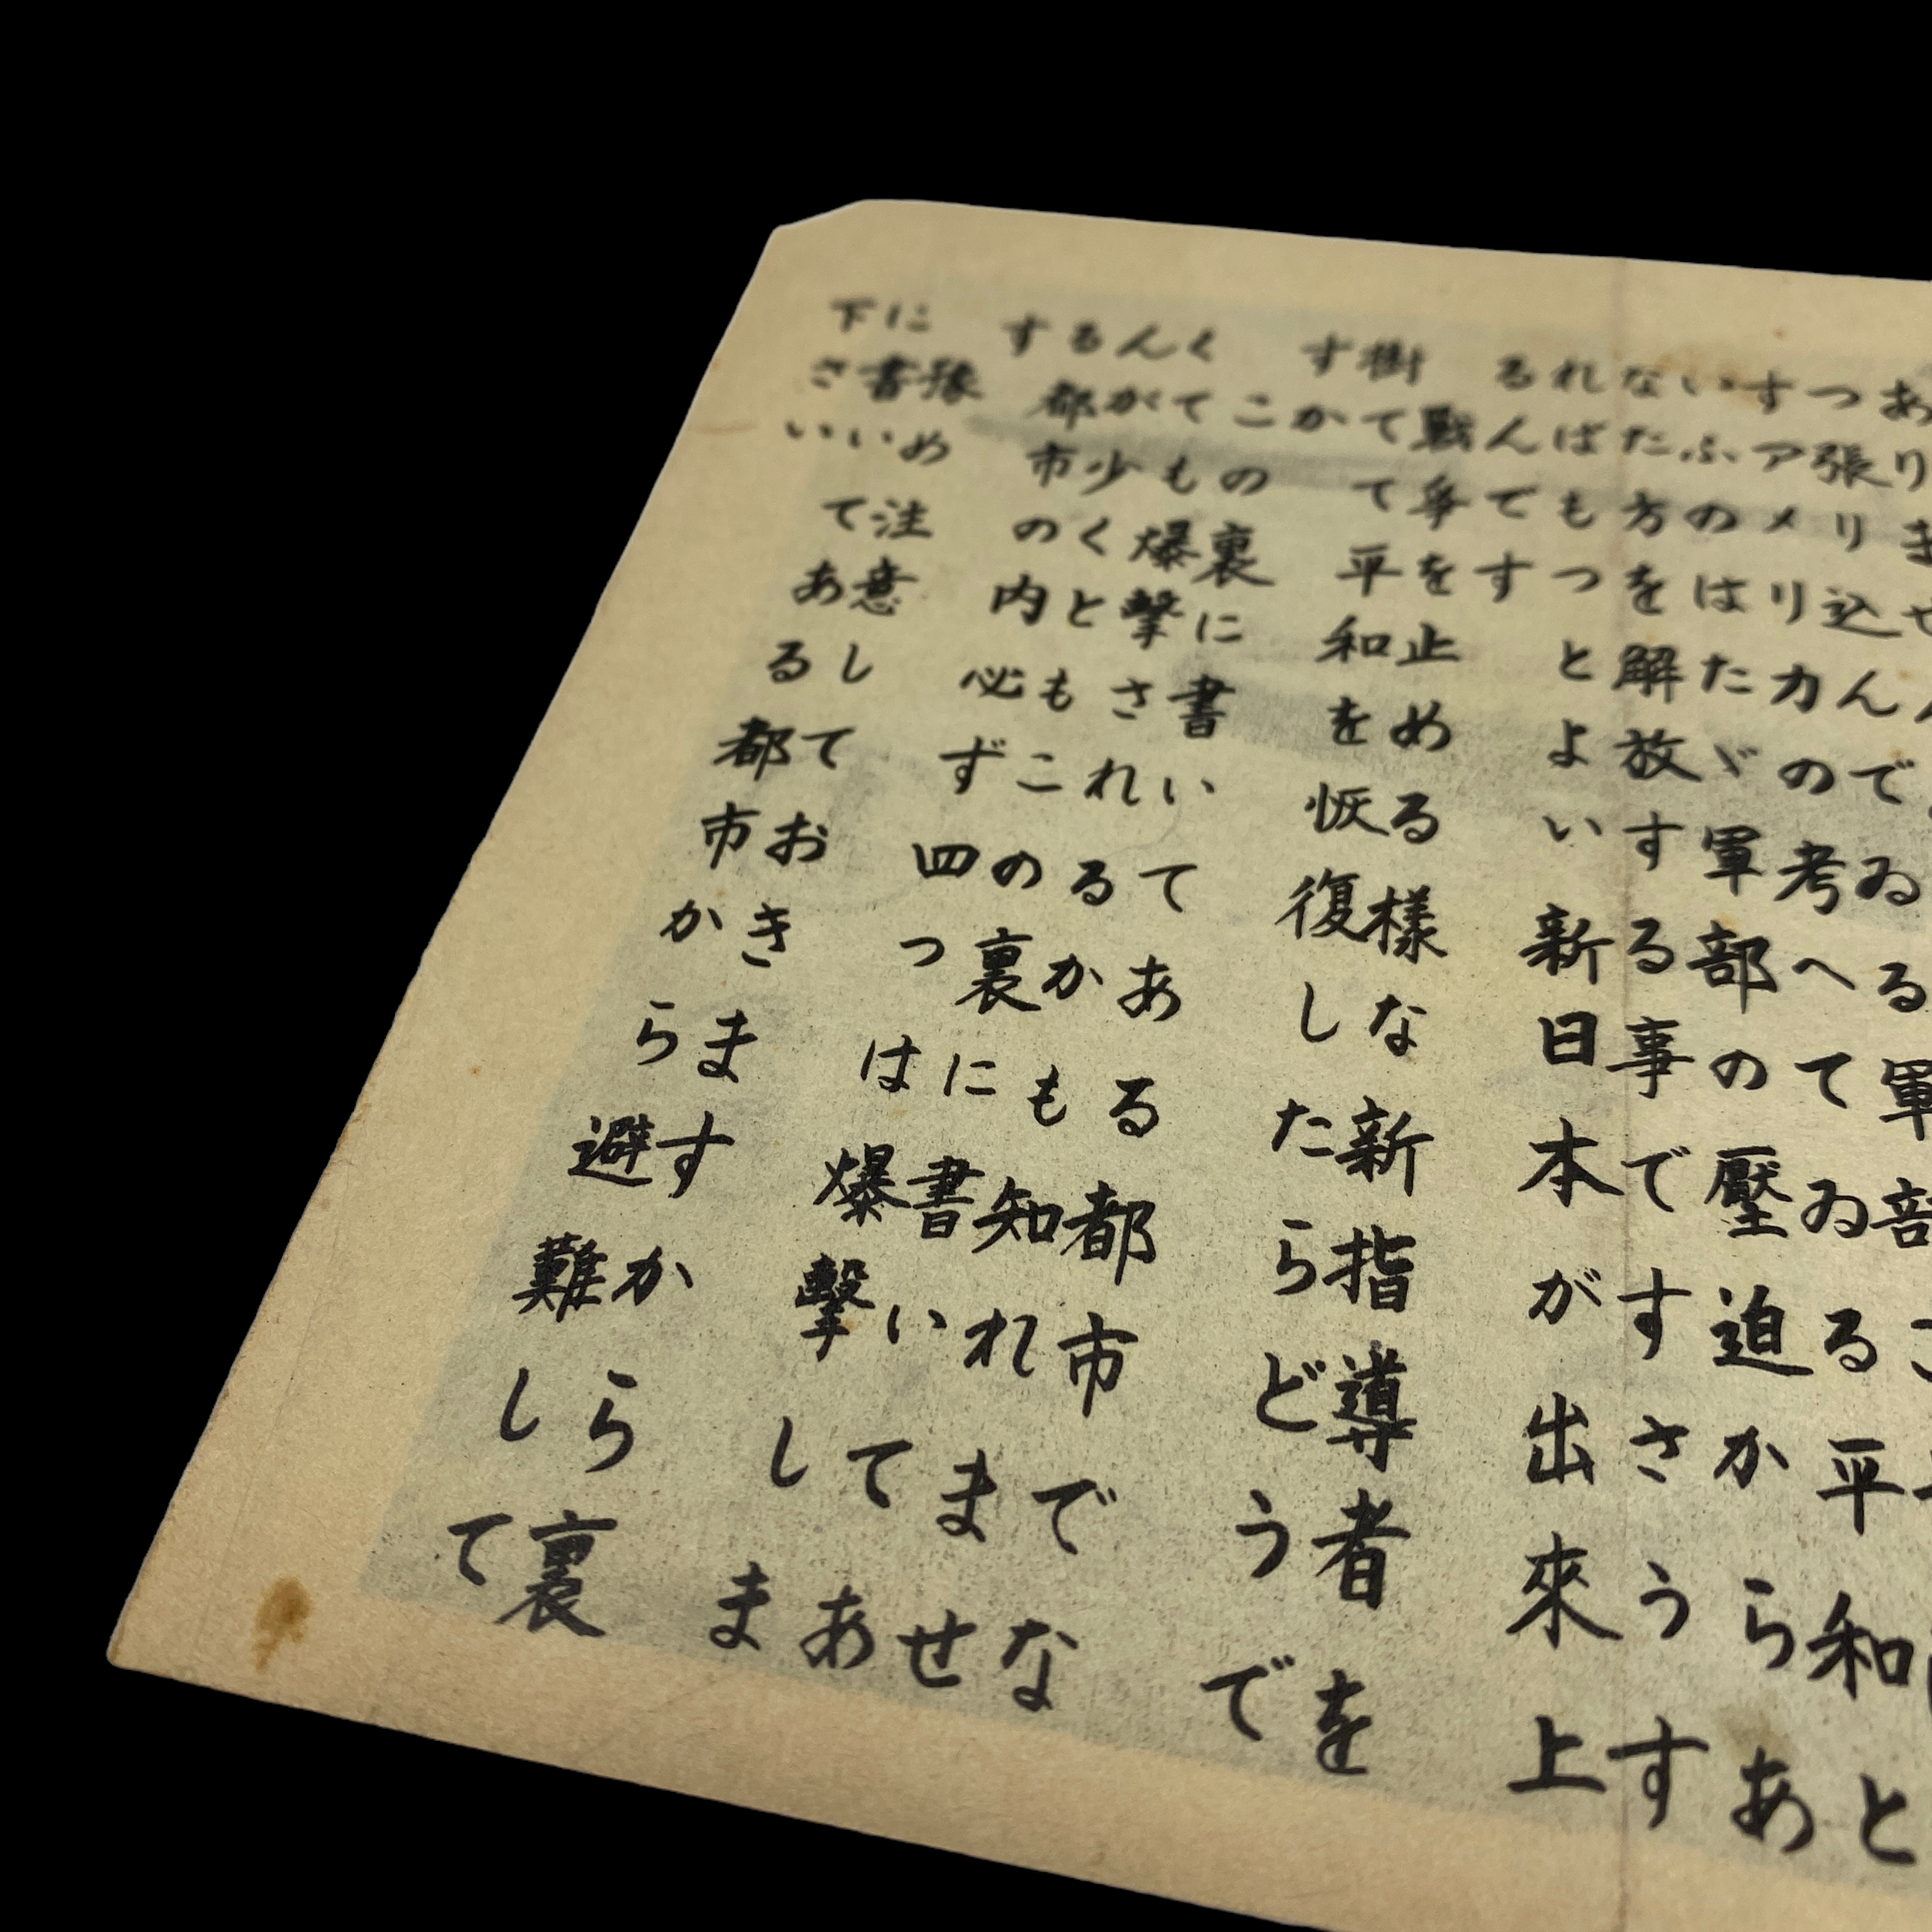 ありません
つ張り込んでゐる軍部こ
すアメリカの考へてゐる平和と
いふのはたゞ軍部の壓迫からあ
なた方を解放する事ですさうす
ればもつとよい新日本が出來上
るんです
戰爭を止める様な新指導者を
樹てて平和を恢復したらどうで
すか
この裏に書いてある都市でな
くても爆擊されるかも知れませ
んが少くともこの裏に書いてあ
る都市の内必ず四つは爆擊しま
す
豫め注意しておきますから裏
に書いてある都市から避難して
下さい